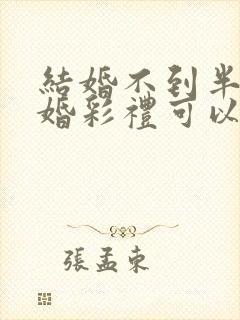 結婚不到半
婚彩禮可以
張孟東